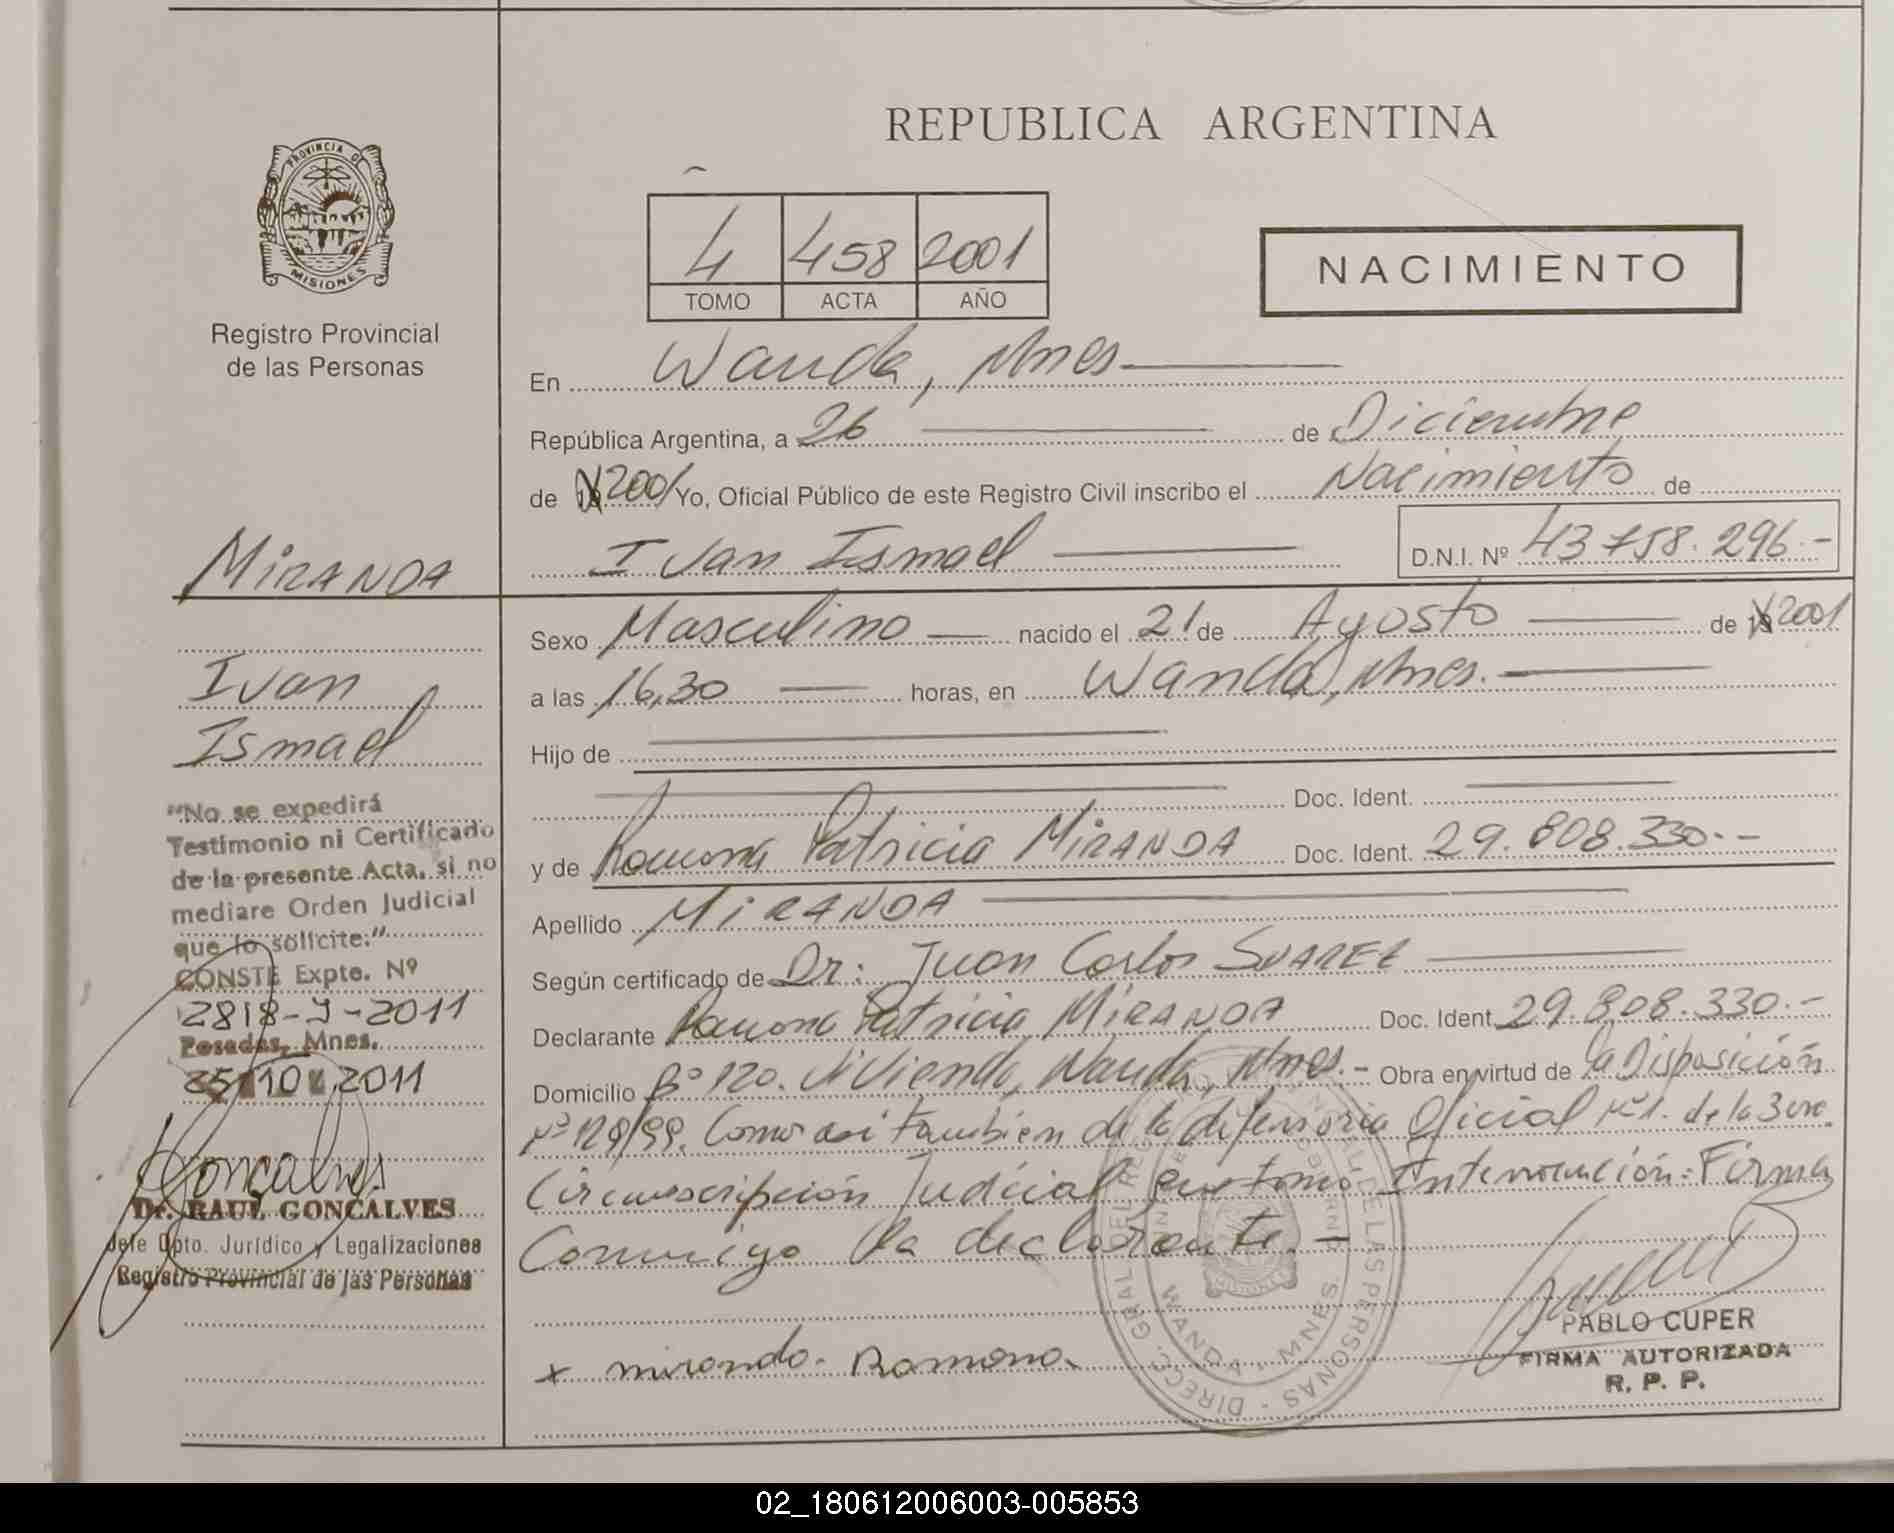 REPUBLICA ARGENTINA
PROVINCIA DE
MISIONES
Registro Provincial
de las Personas
4 458 2001
TOMO ACTA AÑO
NACIMIENTO
En Wanda, Mnes
República Argentina, a 26 de Diciembre
de 19 2001 Yo, Oficial Público de este Registro Civil inscribo el Nacimiento de
Ivan Ismael D.N.I. Nº 43 758.296.-
MIRANDA
Ivan
Ismael
"No se expedirá
Testimonio ni Certificado
de la presente Acta, si no
mediare Orden Judicial
que lo solicite."
CONSTE Expte. Nº
2818-J-2011
Posadas, Mnes.
25 10 2011
Goncalves
Dr. RAUL GONCALVES
Jefe Dpto. Jurídico y Legalizaciones
Registro Provincial de las Personas
Sexo Masculino nacido el 21 de Agosto de 19 2001
a las 16,30 horas, en Wanda, Mnes.
Hijo de
Doc. Ident.
y de Ramona Patricia MIRANDA Doc. Ident. 29.808.330.-
Apellido MIRANDA
Según certificado de Dr: Juan Carlos SUAREZ
Declarante Ramona Patricia MIRANDA Doc. Ident. 29.808.330.-
Domicilio Bº 120. Vivienda, Wanda, Mnes.- Obra en virtud de la Disposición
Nº 128/99. Como asi también de la defensoria Oficial Nº1. de la 3era.
Circunscripción Judicial que tomo Intervención: Firma
Conmigo la declarante.-
x miranda. Ramona.
WANDA, MNES.
PABLO CUPER
FIRMA AUTORIZADA
R. P. P.
02_180612006003-005853